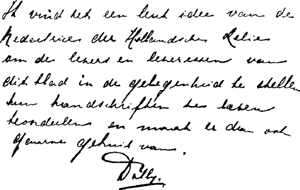 Ik vind het een leuk idee van de
Redactrice der Hollandsche Lelie
om de lezers en lezeressen van
dit blad in de gelegenheid te stellen
hun handschriften te laten
beoordeelen en maak er dan ook
gaarne gebruik van.